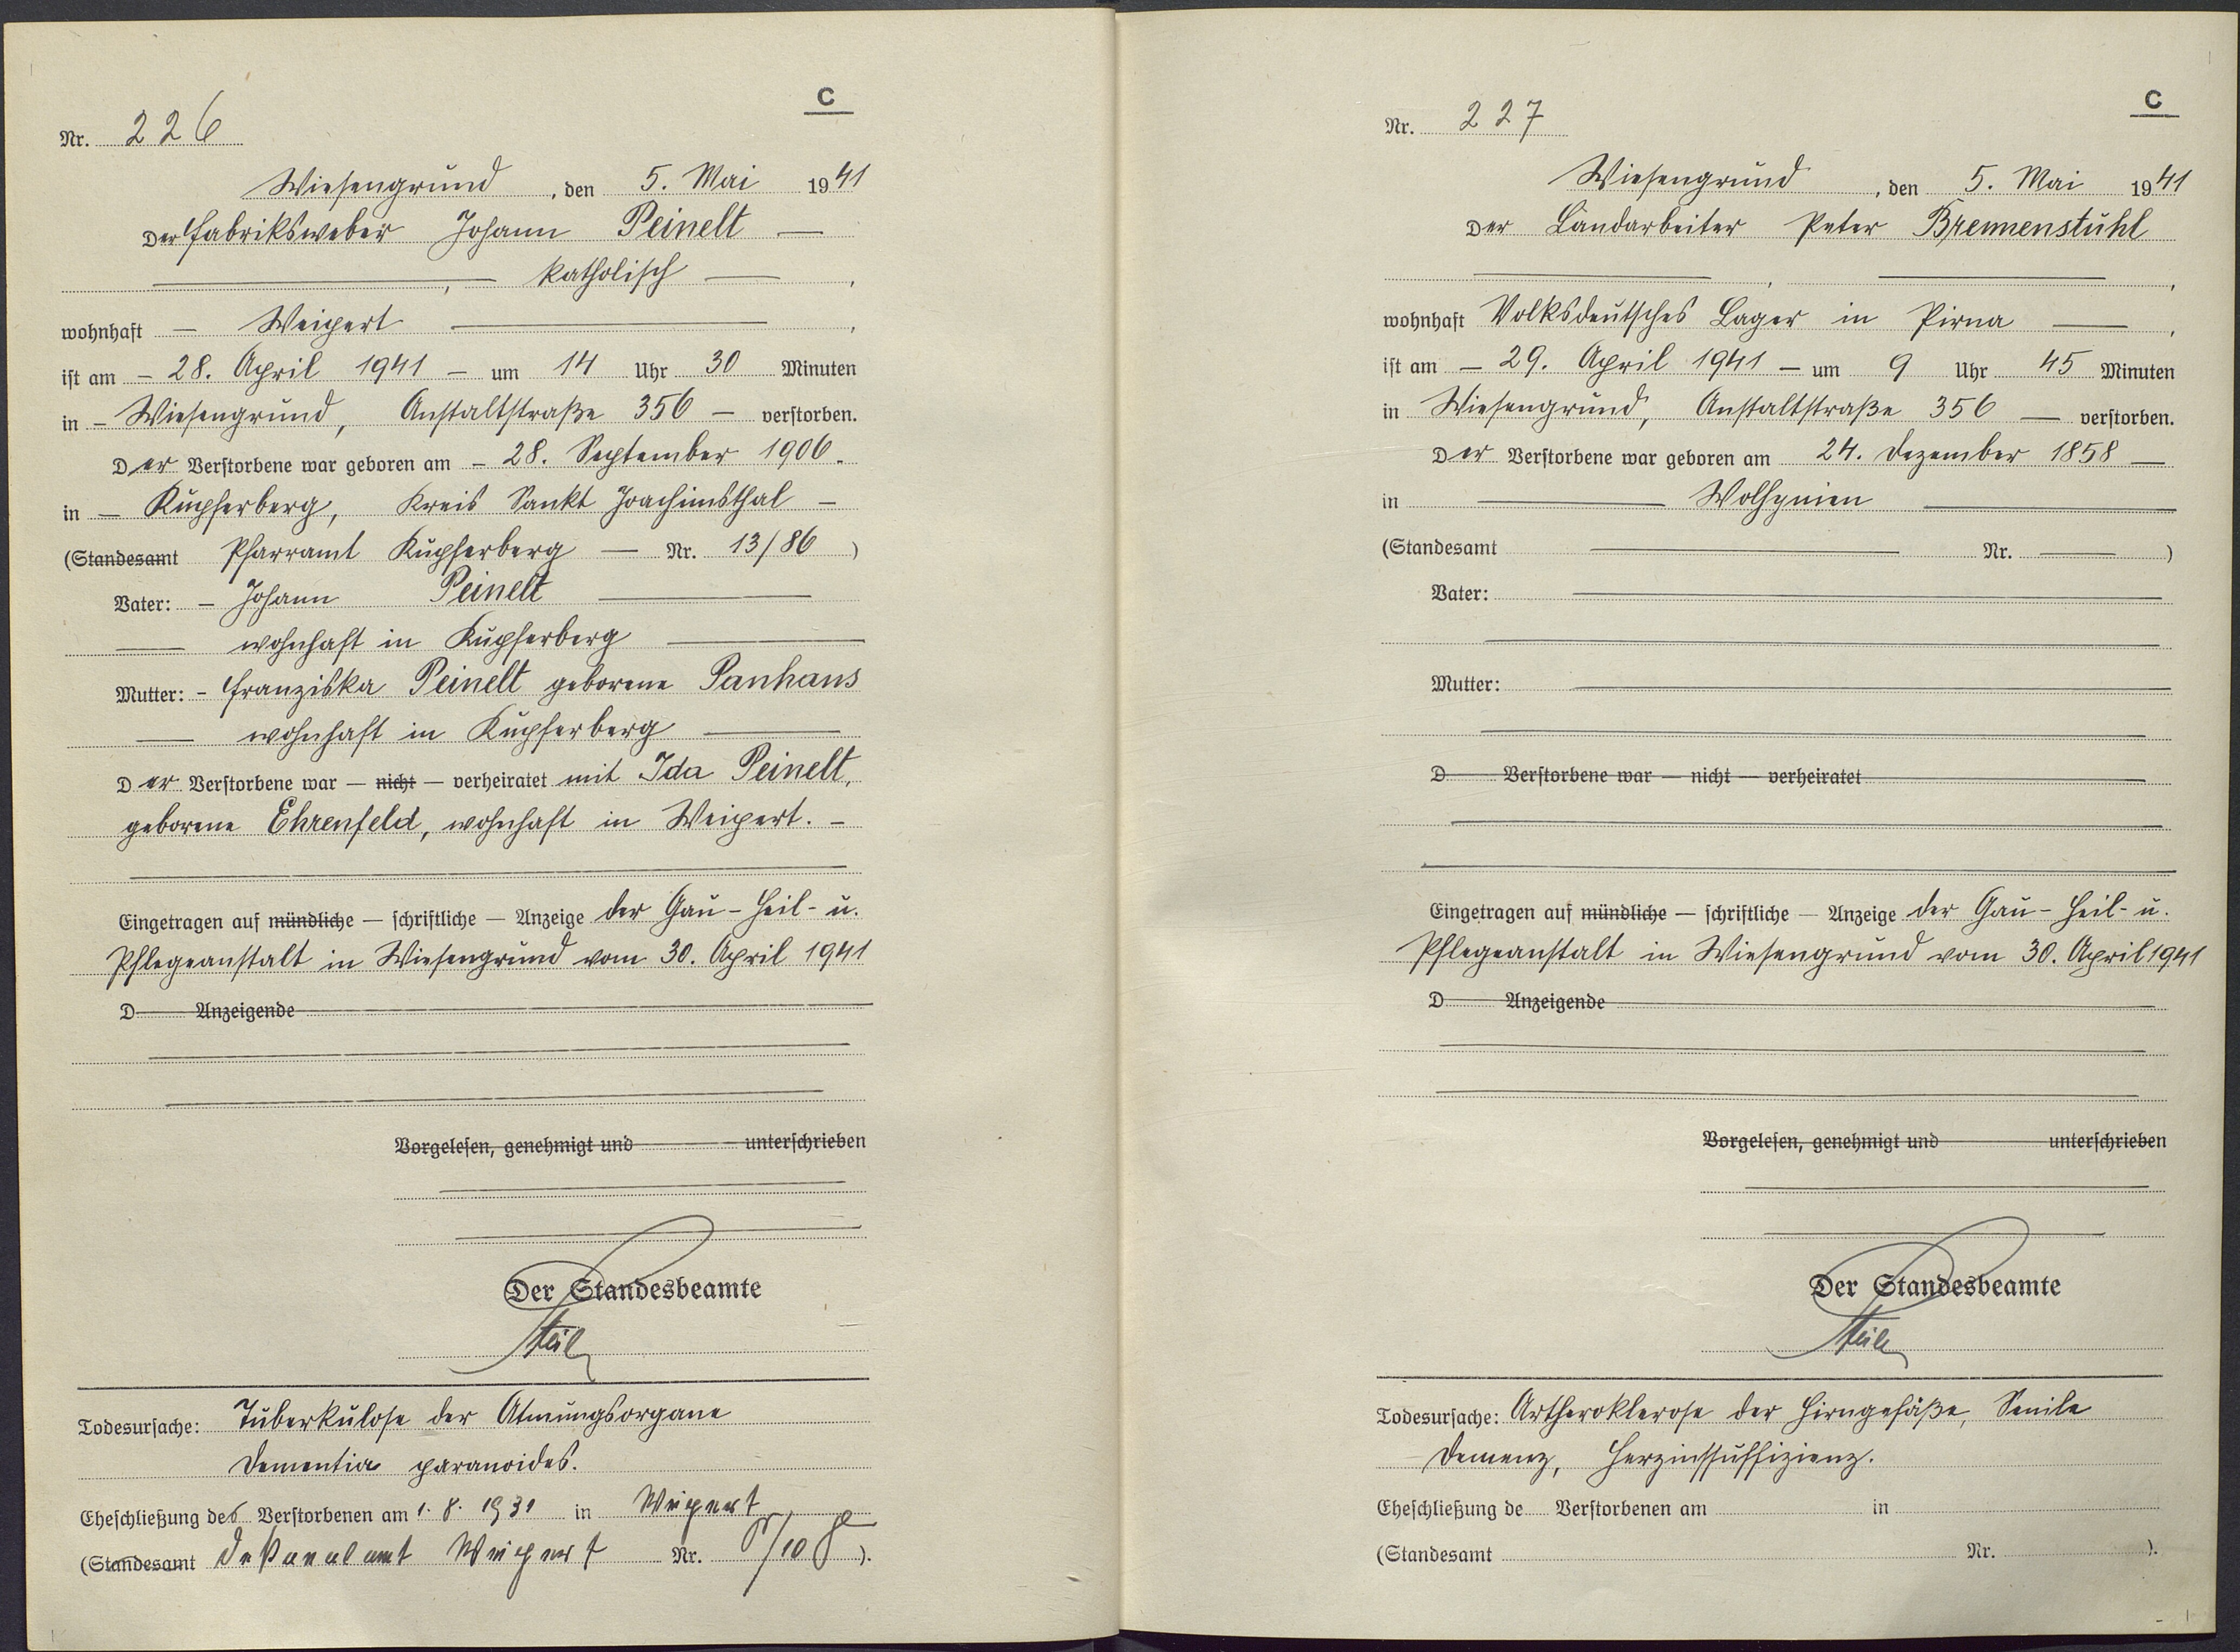 C
Nr. 226
Wiesengrund, den 5. Mai 1941
Der Fabriksweber Johann Peinelt —
—, — katholisch —,
wohnhaft — Weipert —,
ist am - 28. April 1941 - um 14 Uhr 30 Minuten
in - Wiesengrund, Anstaltstraße 356 - verstorben.
Der Verstorbene war geboren am - 28. September 1906.
in — Kupferberg, Kreis Sankt Joachimsthal —
(Standesamt Pfarramt Kupferberg — Nr. 13/86)
Vater: - Johann Peinelt —
— wohnhaft in Kupferberg —
Mutter: - Franziska Peinelt geborene Panhans
— wohnhaft in Kupferberg —
Der Verstorbene war — nicht — verheiratet mit Ida Peinelt,
geborene Ehrenfeld, wohnhaft in Weipert. -
Eingetragen auf mündliche — schriftliche — Anzeige der Gau-Heil- u.
Pflegeanstalt in Wiesengrund vom 30. April 1941
D Anzeigende
Vorgelesen, genehmigt und unterschrieben
Der Standesbeamte
Todesursache: Tuberkulose der Atmungsorgane
Dementia paranoides.
Eheschließung des Verstorbenen am 1. 8. 1931 in Weipert
(Standesamt Dekanalamt Weipert Nr. /10).
C
Nr. 227
Wiesengrund, den 5. Mai 1941
Der Landarbeiter Peter Brennenstuhl
—, —,
wohnhaft Volksdeutsches Lager in Pirna —,
ist am - 29. April 1941 - um 9 Uhr 45 Minuten
in Wiesengrund, Anstaltstraße 356 — verstorben.
Der Verstorbene war geboren am 24. Dezember 1858 —
in — Wolhynien —
(Standesamt — Nr. —)
Vater: —
Mutter: —
D Verstorbene war — nicht — verheiratet
Eingetragen auf mündliche — schriftliche — Anzeige der Gau-Heil- u.
Pflegeanstalt in Wiesengrund vom 30. April 1941
D Anzeigende
Vorgelesen, genehmigt und unterschrieben
Der Standesbeamte
Todesursache: Artheroklerose der Hirngefäße, Senile
Demenz, Herzinssuffizienz.
Eheschließung de Verstorbenen am in
(Standesamt Nr. ).